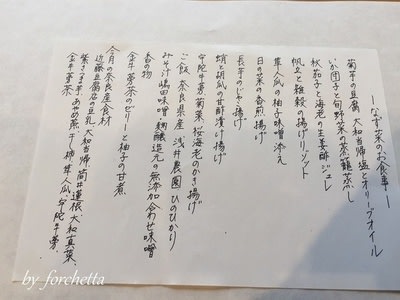 ーなず菜のお食事ー
菊芋の豆腐 大和当帰塩とオリーブオイル
いか団子と旬野菜の茶籠蒸し
秋茄子と海老の生姜酢ジュレ
帆立と雑穀の揚げリゾット
隼人瓜の柚子味噌添え
日の菜の香煎揚げ
長芋のじゃき揚げ
蛸と胡瓜の甘酢漬け揚げ
宇陀牛蒡、菊菜、桜海老のかき揚げ
ご飯 奈良県産 浅井農園 ひのひかり
みそ汁 嶋田味噌・麹醸造元の無添加合わせ味噌
香の物
金牛蒡茶のゼリーと柚子の甘煮
今月の奈良産食材
近藤豆腐店の豆乳、大和当帰、筒井蓮根、大和真菜、
紫さつま芋、あやめ蕪、干し柿、隼人瓜、宇陀牛蒡、
金牛蒡茶
by forchetta